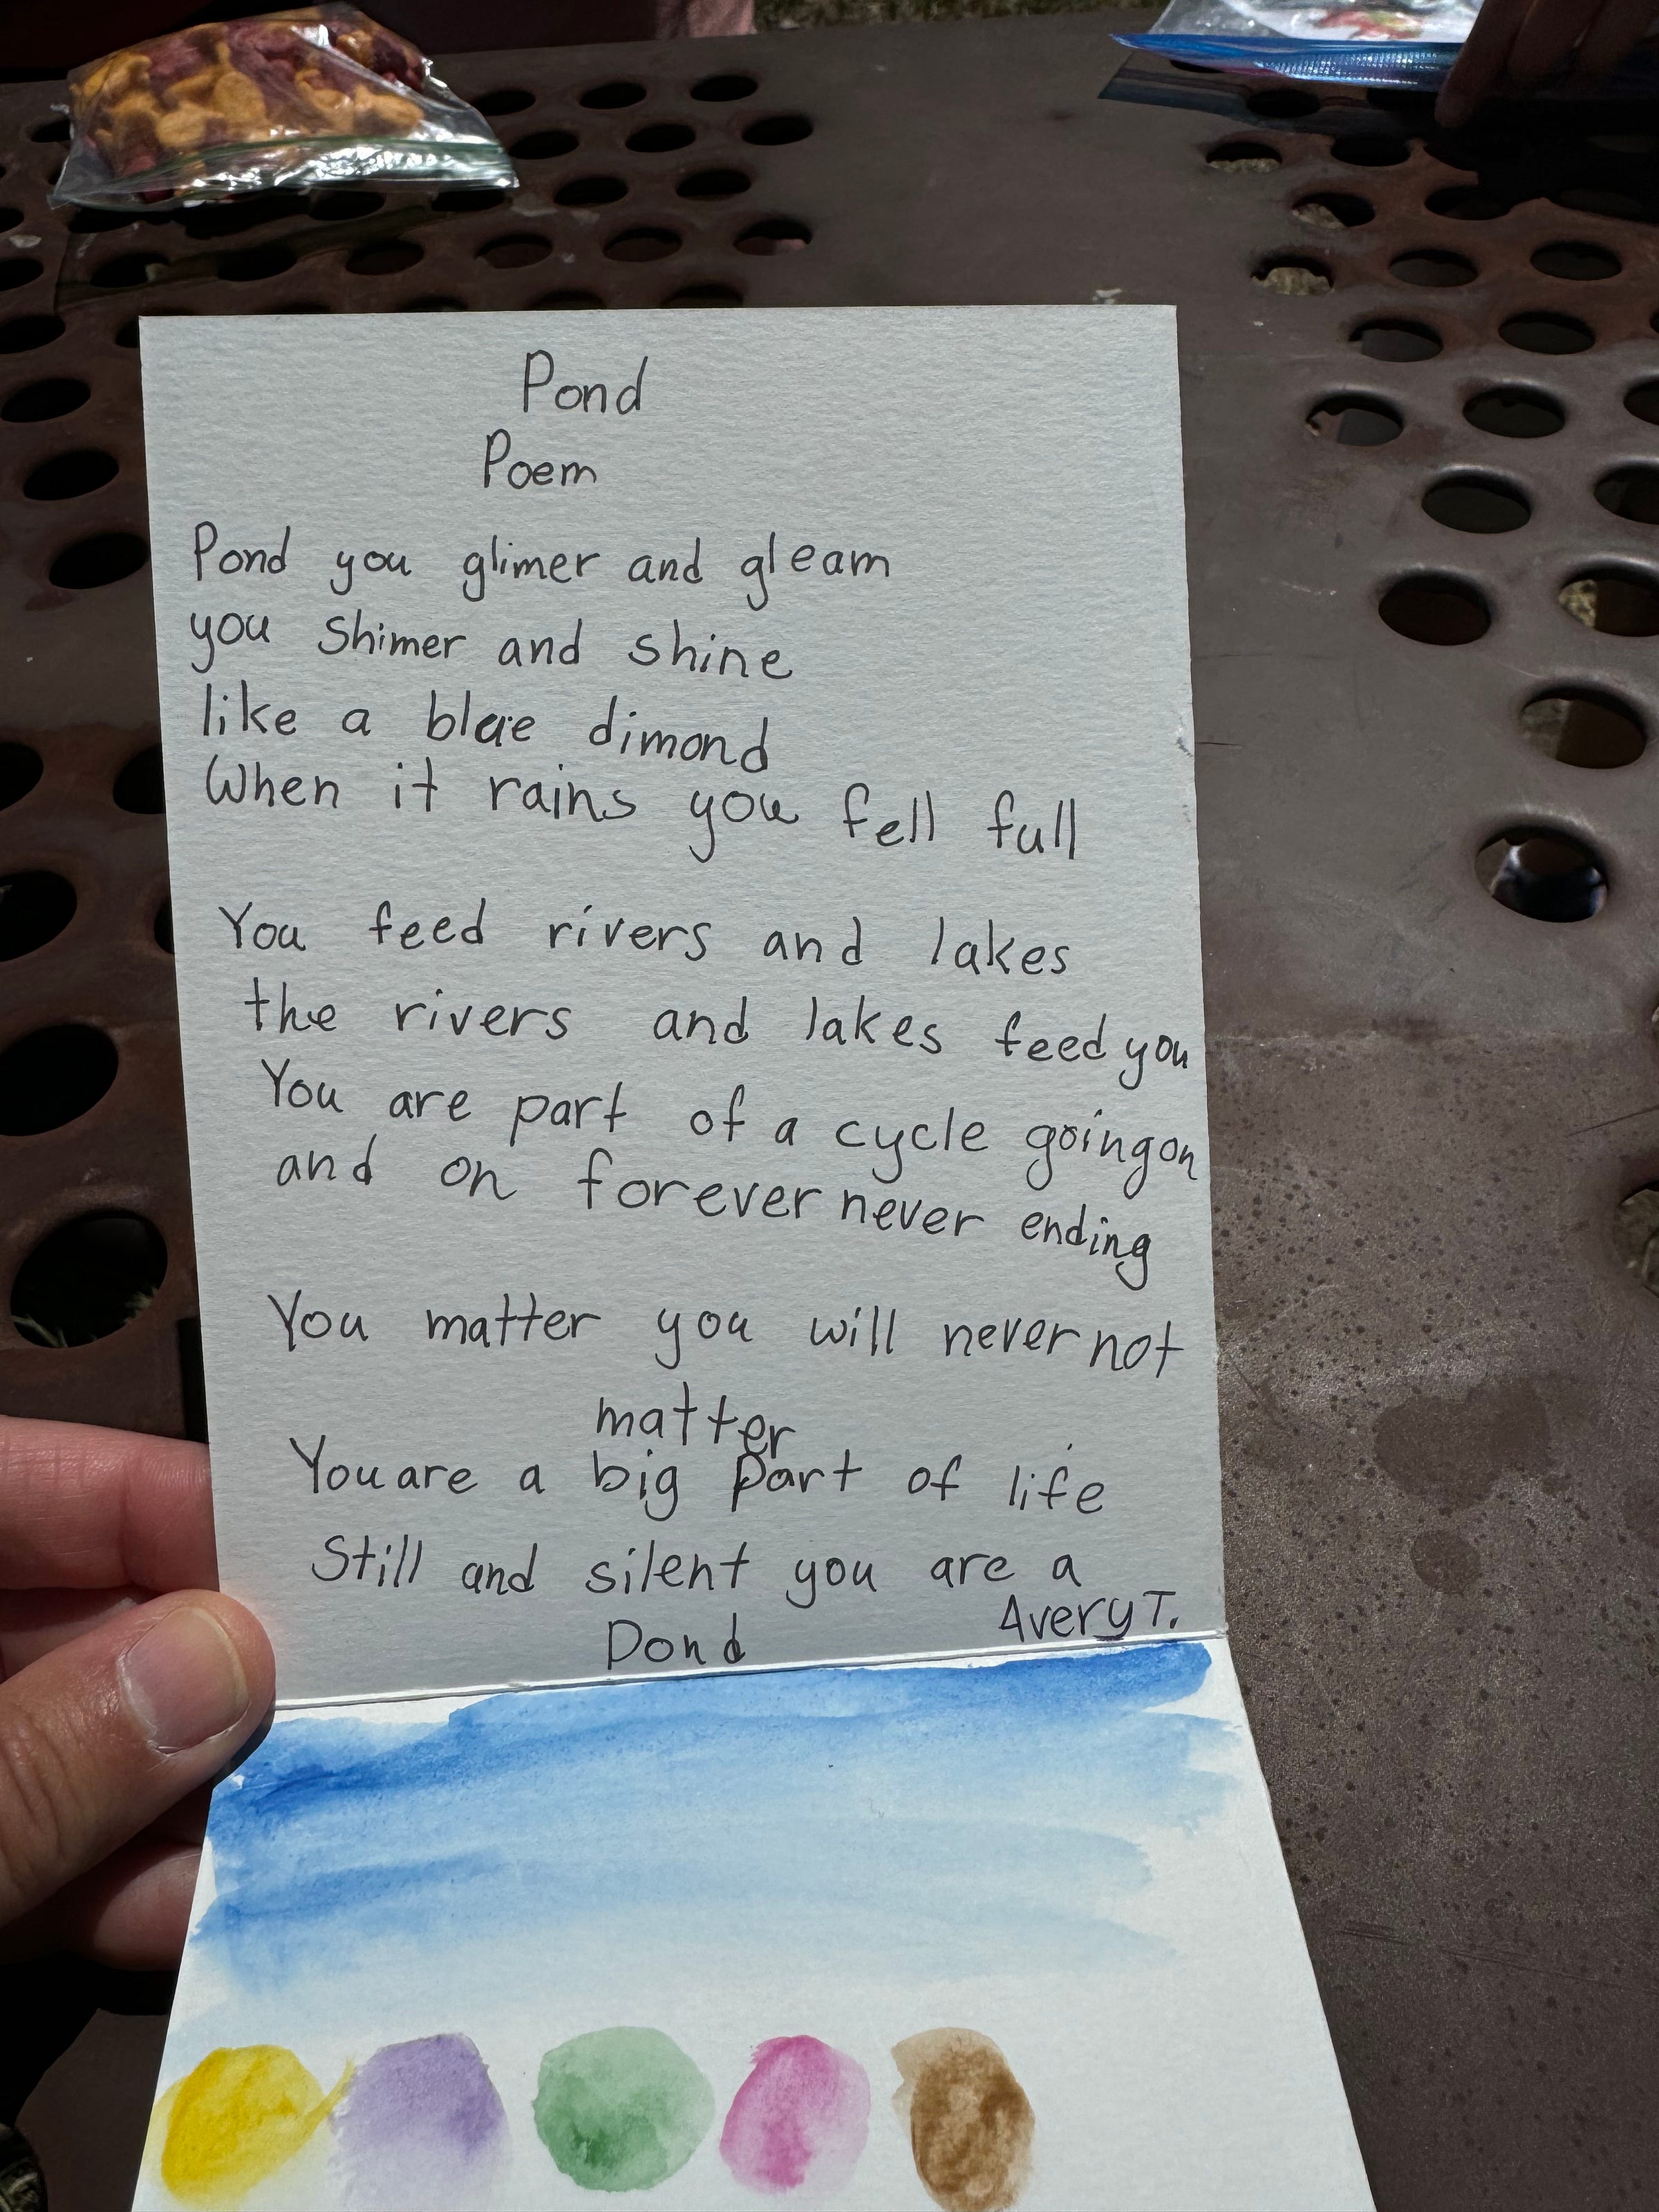 Pond
Poem
Pond you glimer and gleam
you shimer and shine
like a blue dimond
When it rains you fell full
You feed rivers and lakes
the rivers and lakes feed you
You are part of a cycle going on
and on forever never ending
You matter you will never not
matter
You are a big part of life
Still and silent you are a
Pond
Avery T.